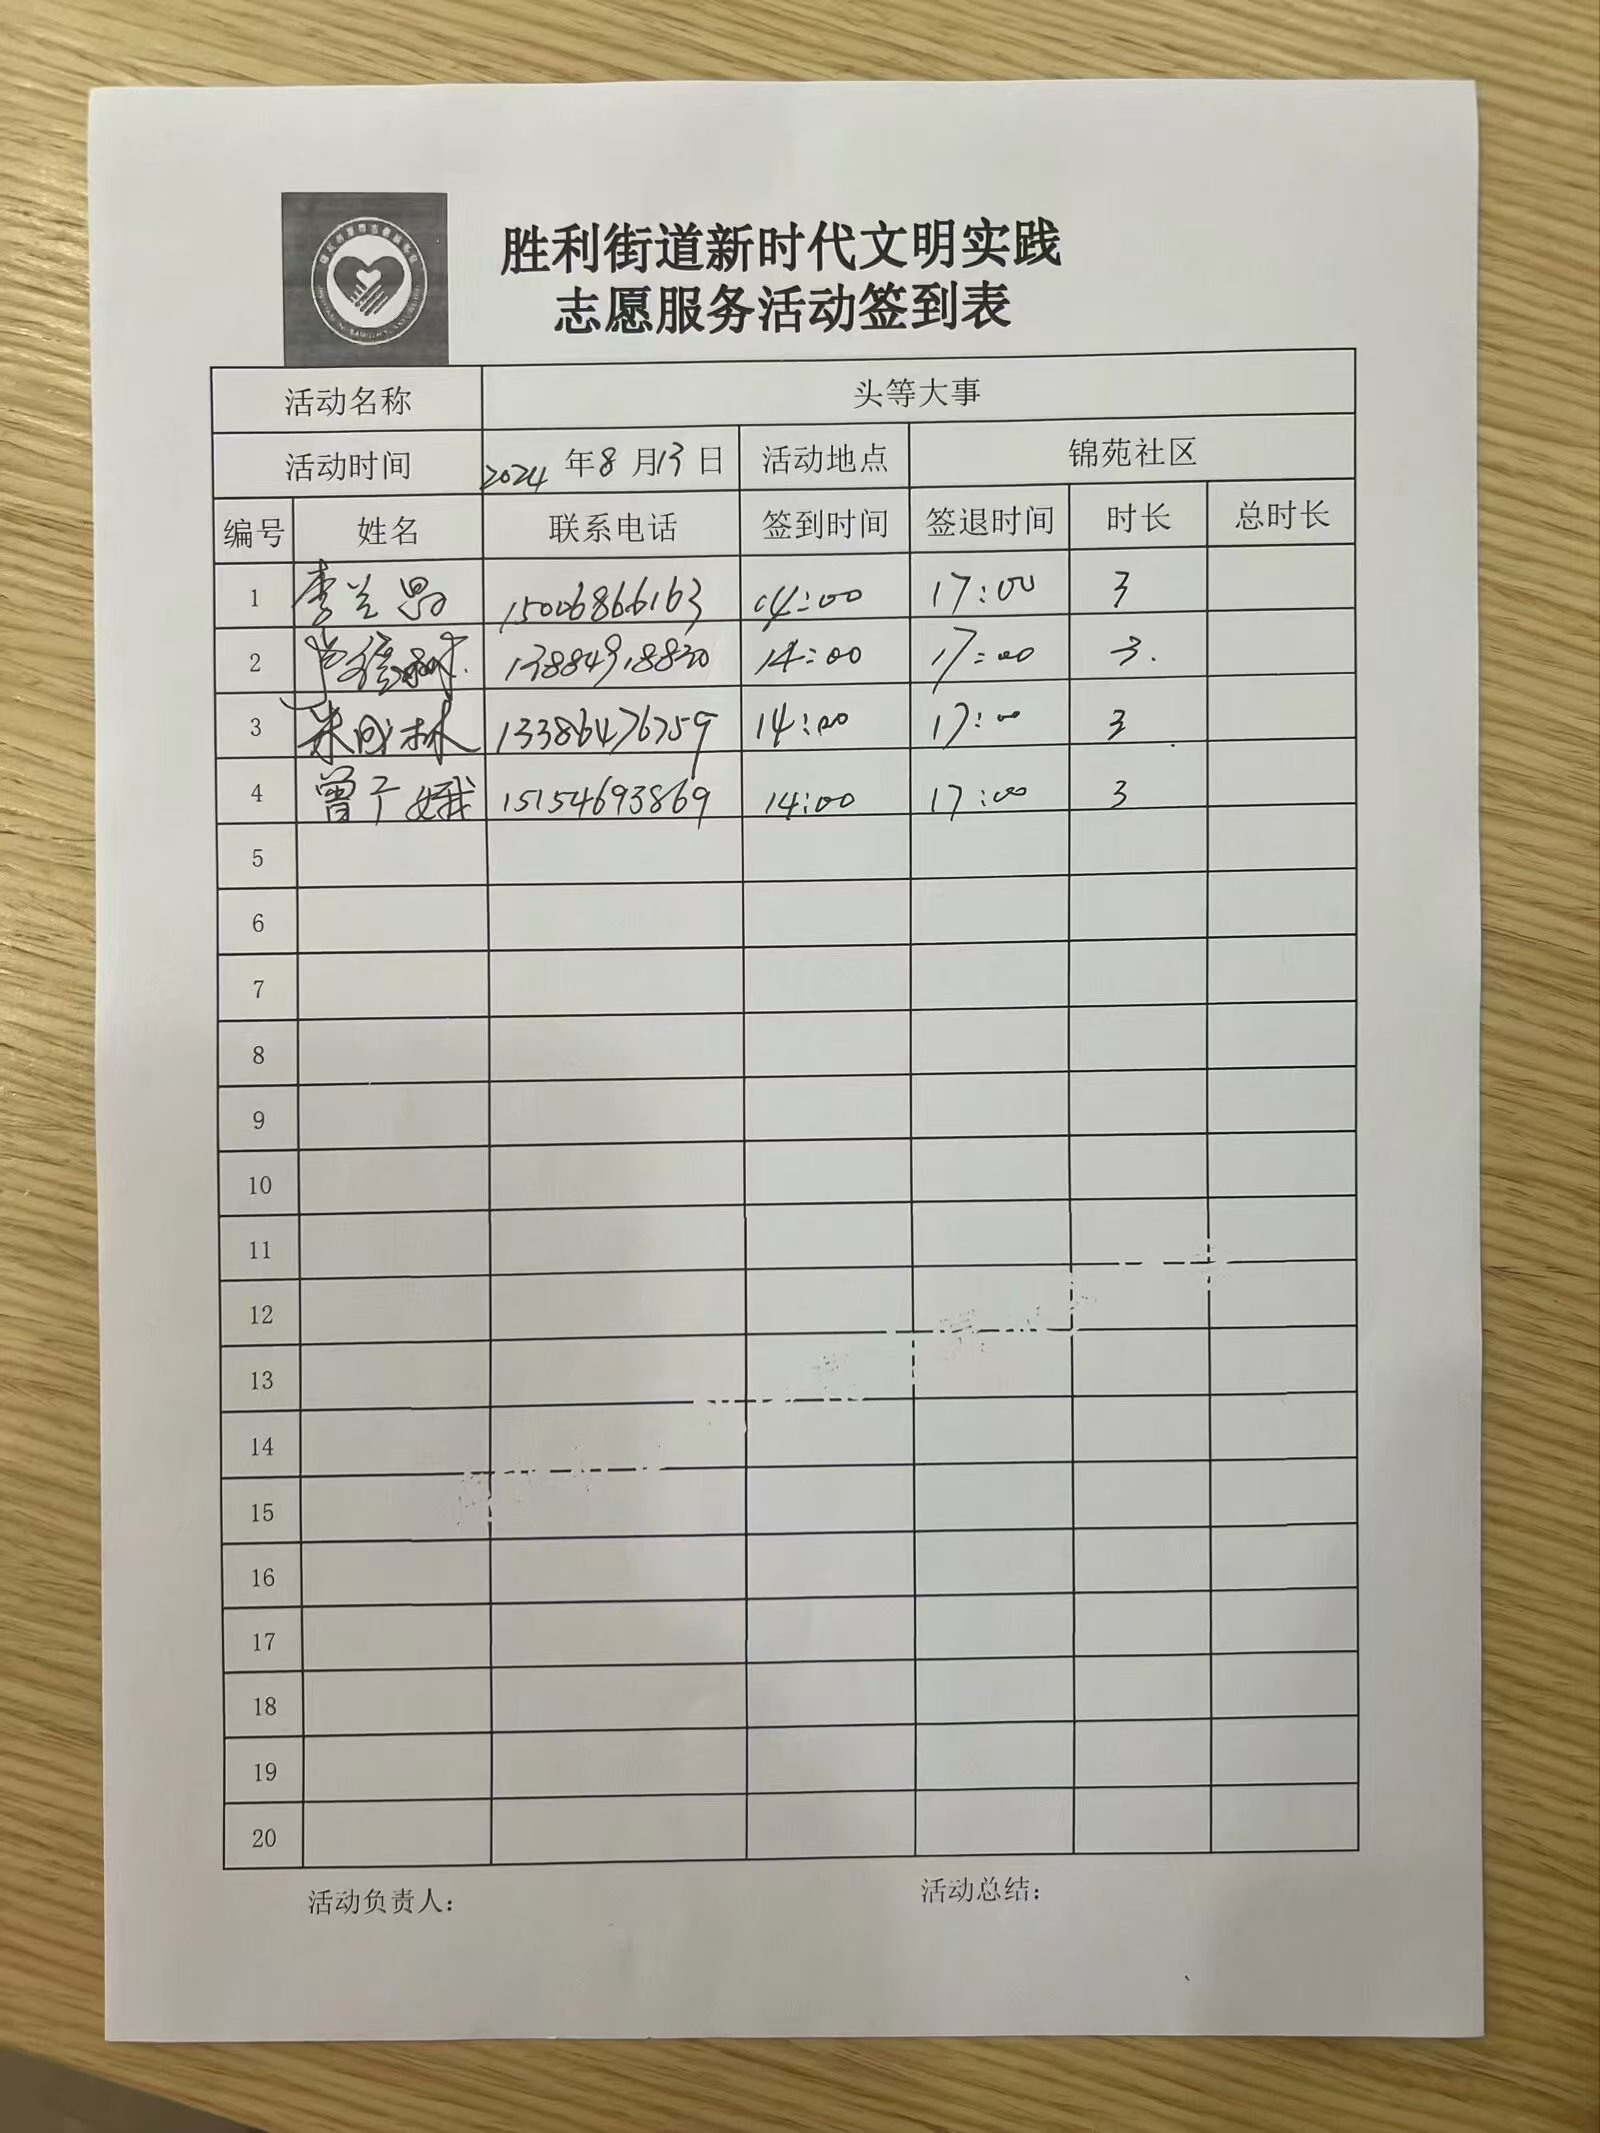 胜利街道新时代文明实践
志愿服务活动签到表
活动名称 头等大事
活动时间 2024年8月13日 活动地点 锦苑社区
编号 姓名 联系电话 签到时间 签退时间 时长 总时长
1 李兰 15006866163 14:00 17:00 3
2 13884918830 14:00 17:00 3.
3 朱成林 13386476759 14:00 17:00 3
4 曾于娥 15154693869 14:00 17:00 3
5
6
7
8
9
10
11
12
13
14
15
16
17
18
19
20
活动负责人: 活动总结: